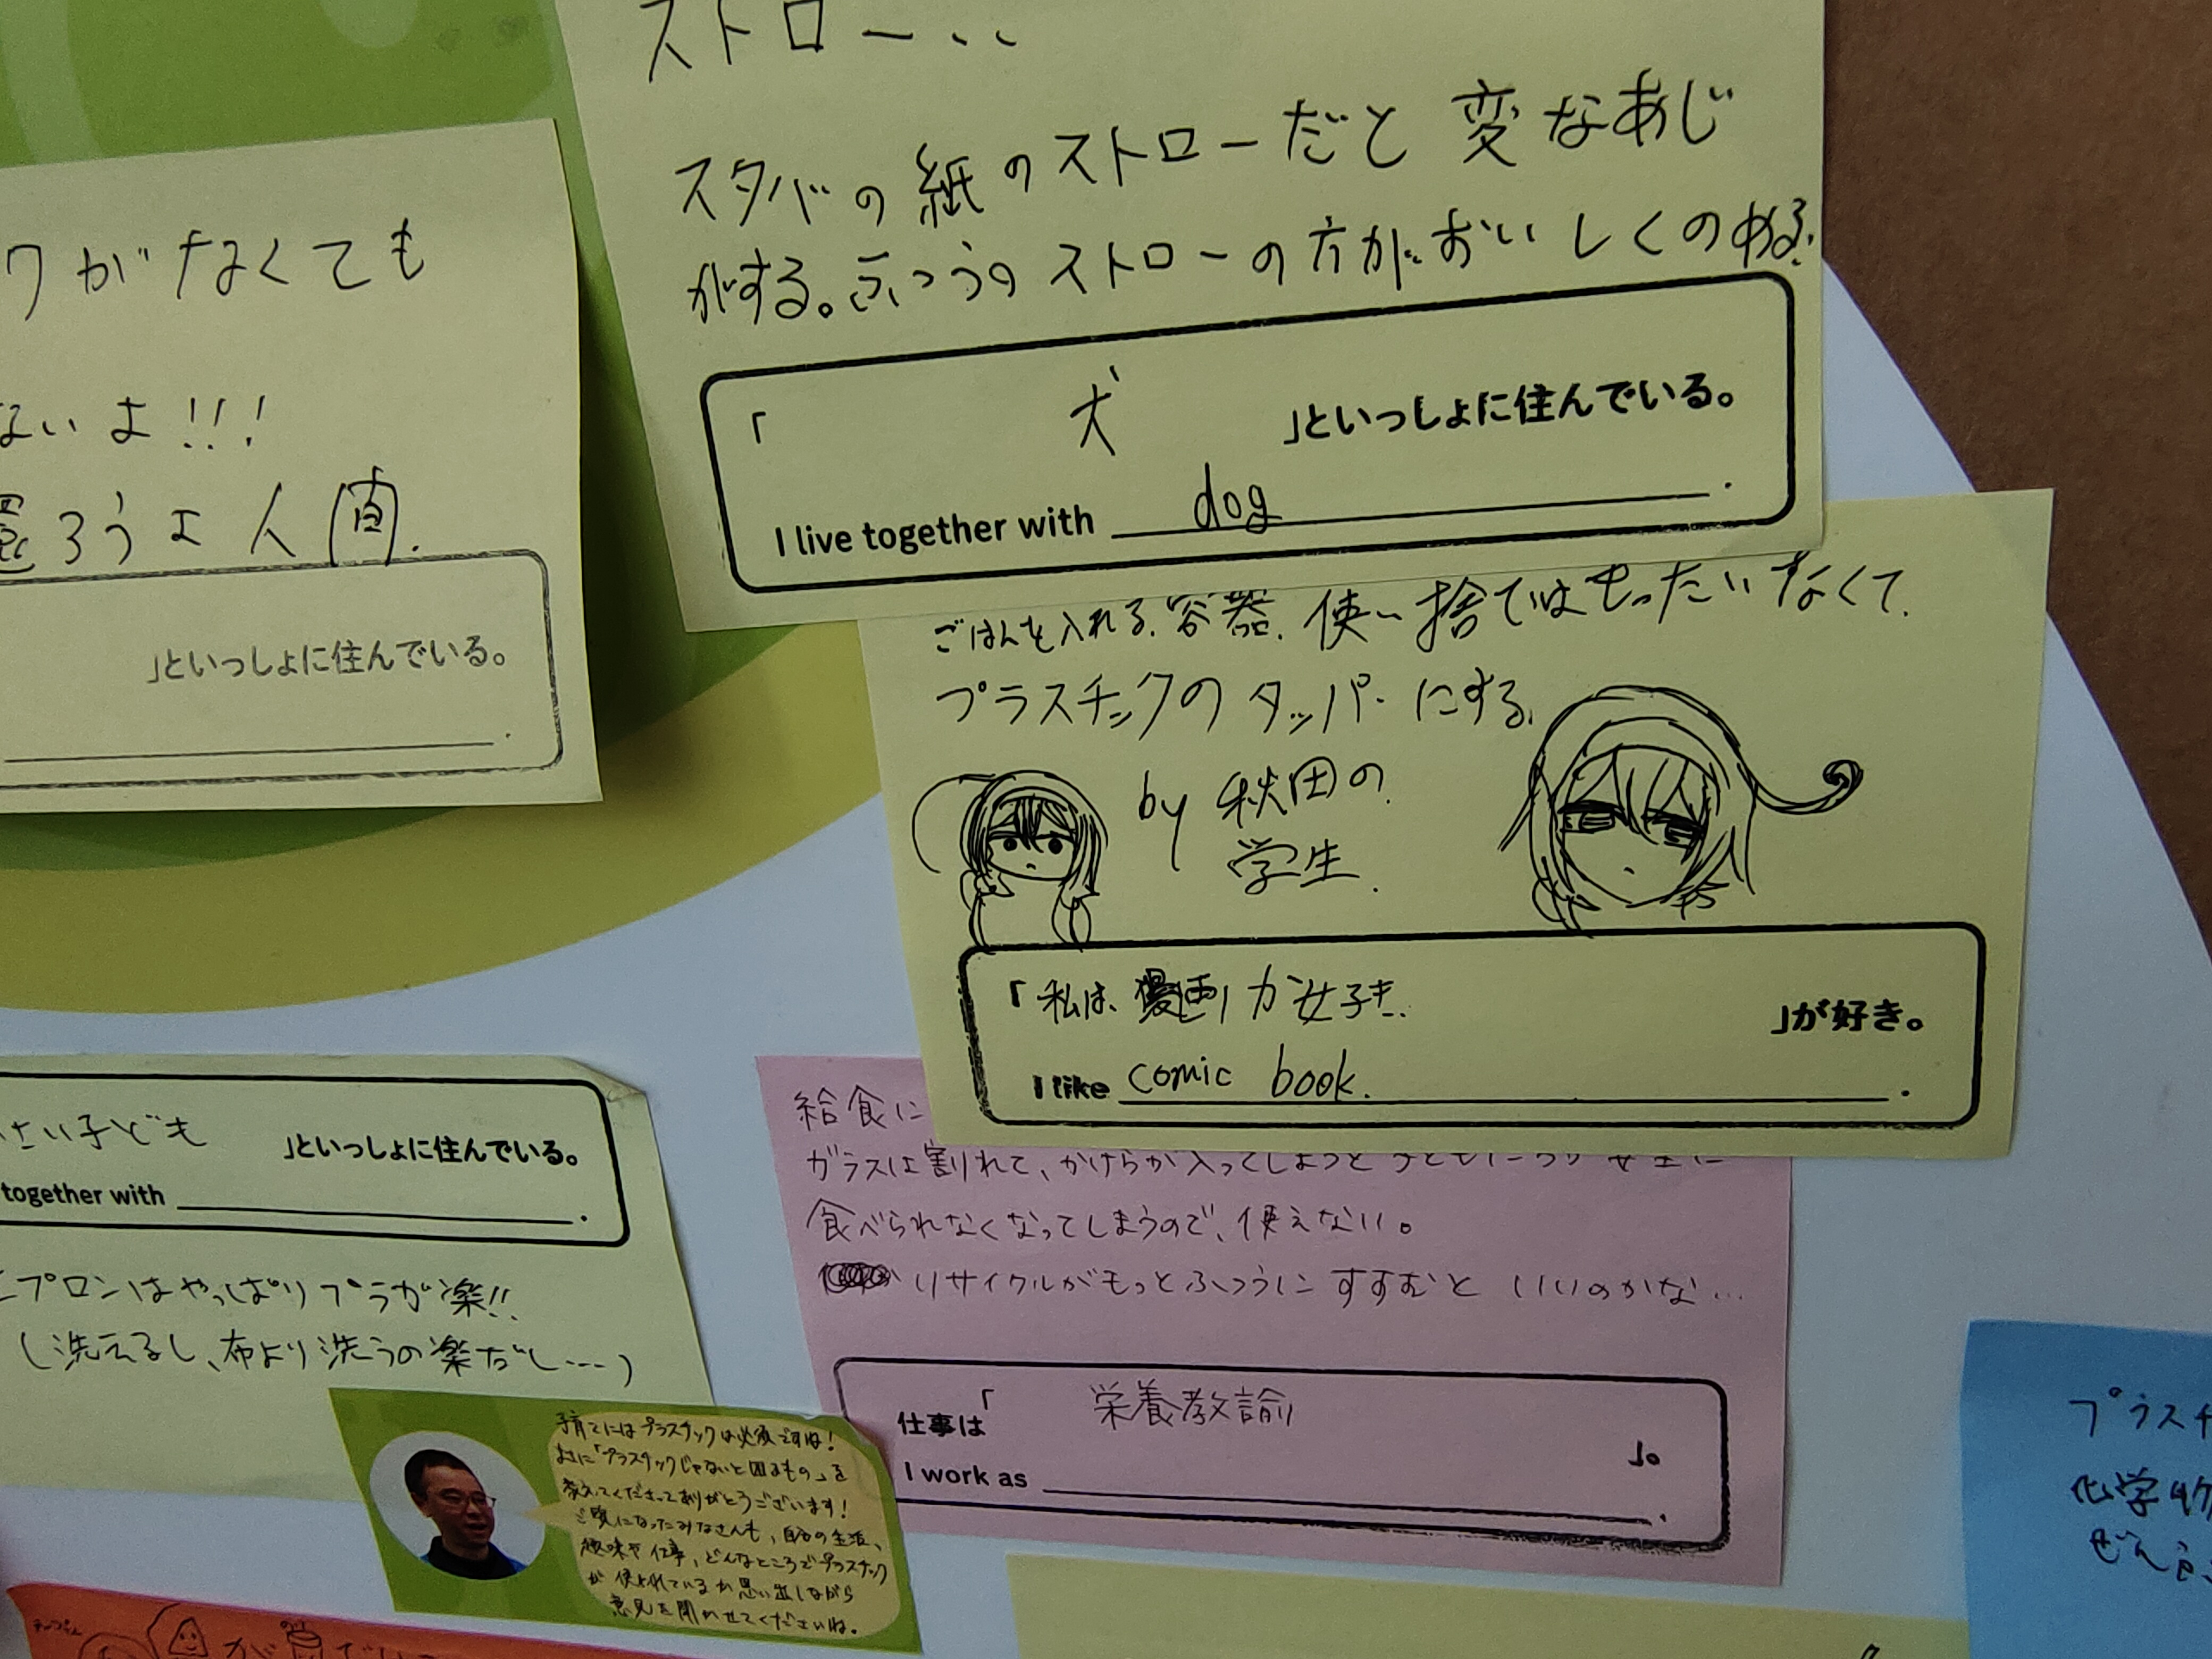 ストロー..
スタバの紙のストローだと変なあじ
がする。ふつうのストローの方がおいしくのめる.
「 犬 」といっしょに住んでいる。
I live together with dog .
クがなくても
ないよ!!!
還ろうよ人間.
」といっしょに住んでいる。
ごはんを入れる.容器.使い捨てはもったいなくて.
プラスチックのタッパーにする.
by 秋田の.
学生.
「私は、漫画が好き. 」が好き。
I like comic book. .
さい子ども 」といっしょに住んでいる。
together with .
エプロンはやっぱりプラが楽!!
(洗えるし、布より洗うの楽だし…)
給食に
ガラスは割れて、かけらが入ってしまうと子どもたちが安全に
食べられなくなってしまうので、使えない。
リサイクルがもっとふつうにすすむと いいのかな…
仕事は「 栄養教諭 」。
I work as .
子育てにはプラスチックは必須ですね!
まさに「プラスチックじゃないと困るもの」を
教えてくださってありがとうございます!
ご覧になったみなさんも、自分の生活、
趣味や仕事、どんなところでプラスチック
が使われているか思い出しながら
意見を聞かせてくださいね。
プラスチ
化学物
ぜん
が